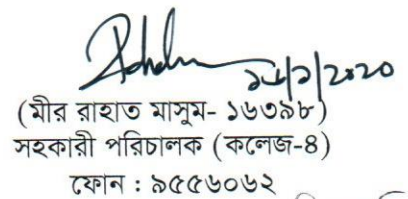 (মীর রাহাত মাসুম- ১৬৩৯৮)
সহকারী পরিচালক (কলেজ-৪)
ফোন : ৯৫৫৬০৬২